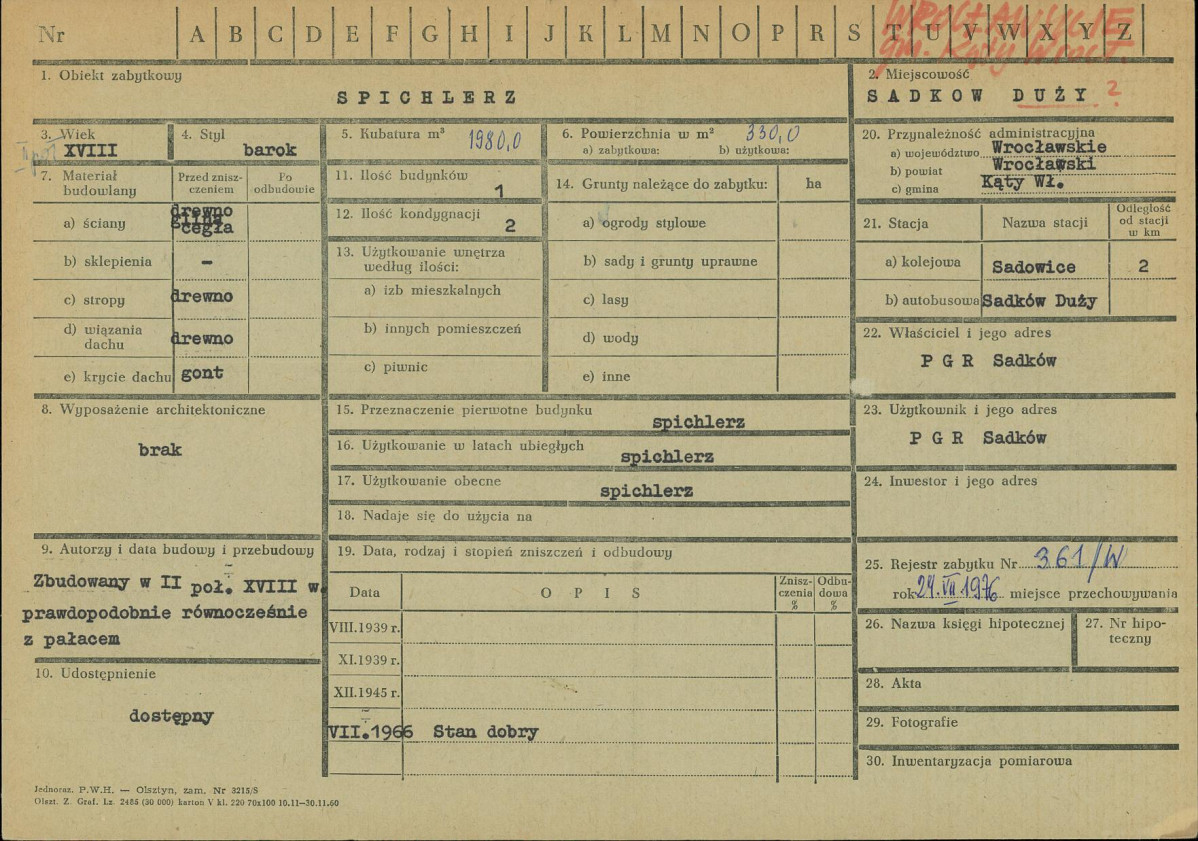 Nr A B C D E F G H I J K L M N O P R S T U V W X Y Z
WROCŁAWICE
gm. Kąty Wrocł.
1. Obiekt zabytkowy
SPICHLERZ
2. Miejscowość
SADKOW DUŻY ?
3. Wiek
II poł
XVIII
4. Styl
barok
5. Kubatura m³ 1980,0
6. Powierzchnia w m² 330,0
a) zabytkowa: b) użytkowa:
7. Materiał budowlany
Przed zniszczeniem
Po odbudowie
a) ściany drewno
glina
cegła
b) sklepienia -
c) stropy drewno
d) wiązania dachu drewno
e) krycie dachu gont
11. Ilość budynków
1
12. Ilość kondygnacji
2
13. Użytkowanie wnętrza
według ilości:
a) izb mieszkalnych
b) innych pomieszczeń
c) piwnic
14. Grunty należące do zabytku: ha
a) ogrody stylowe
b) sady i grunty uprawne
c) lasy
d) wody
e) inne
20. Przynależność administracyjna
a) województwo Wrocławskie
b) powiat Wrocławski
c) gmina Kąty Wł.
21. Stacja Nazwa stacji Odległość od stacji w km
a) kolejowa Sadowice 2
b) autobusowa Sadków Duży
22. Właściciel i jego adres
P G R Sadków
8. Wyposażenie architektoniczne
brak
15. Przeznaczenie pierwotne budynku
spichlerz
16. Użytkowanie w latach ubiegłych
spichlerz
17. Użytkowanie obecne
spichlerz
18. Nadaje się do użycia na
23. Użytkownik i jego adres
P G R Sadków
24. Inwestor i jego adres
9. Autorzy i data budowy i przebudowy
Zbudowany w II poł. XVIII w.
prawdopodobnie równocześnie
z pałacem
10. Udostępnienie
dostępny
19. Data, rodzaj i stopień zniszczeń i odbudowy
Data OPIS Zniszczenia % Odbudowa %
VIII.1939 r.
XI.1939 r.
XII.1945 r.
VII.1966 Stan dobry
25. Rejestr zabytku Nr 361/W
rok 24.VII 1976 miejsce przechowywania
26. Nazwa księgi hipotecznej
27. Nr hipoteczny
28. Akta
29. Fotografie
30. Inwentaryzacja pomiarowa
Jednoraz. P.W.H. — Olsztyn, zam. Nr 3215/S
Olszt. Z. Graf. Lz. 2485 (30 000) karton V kl. 220 70x100 10.11—30.11.60